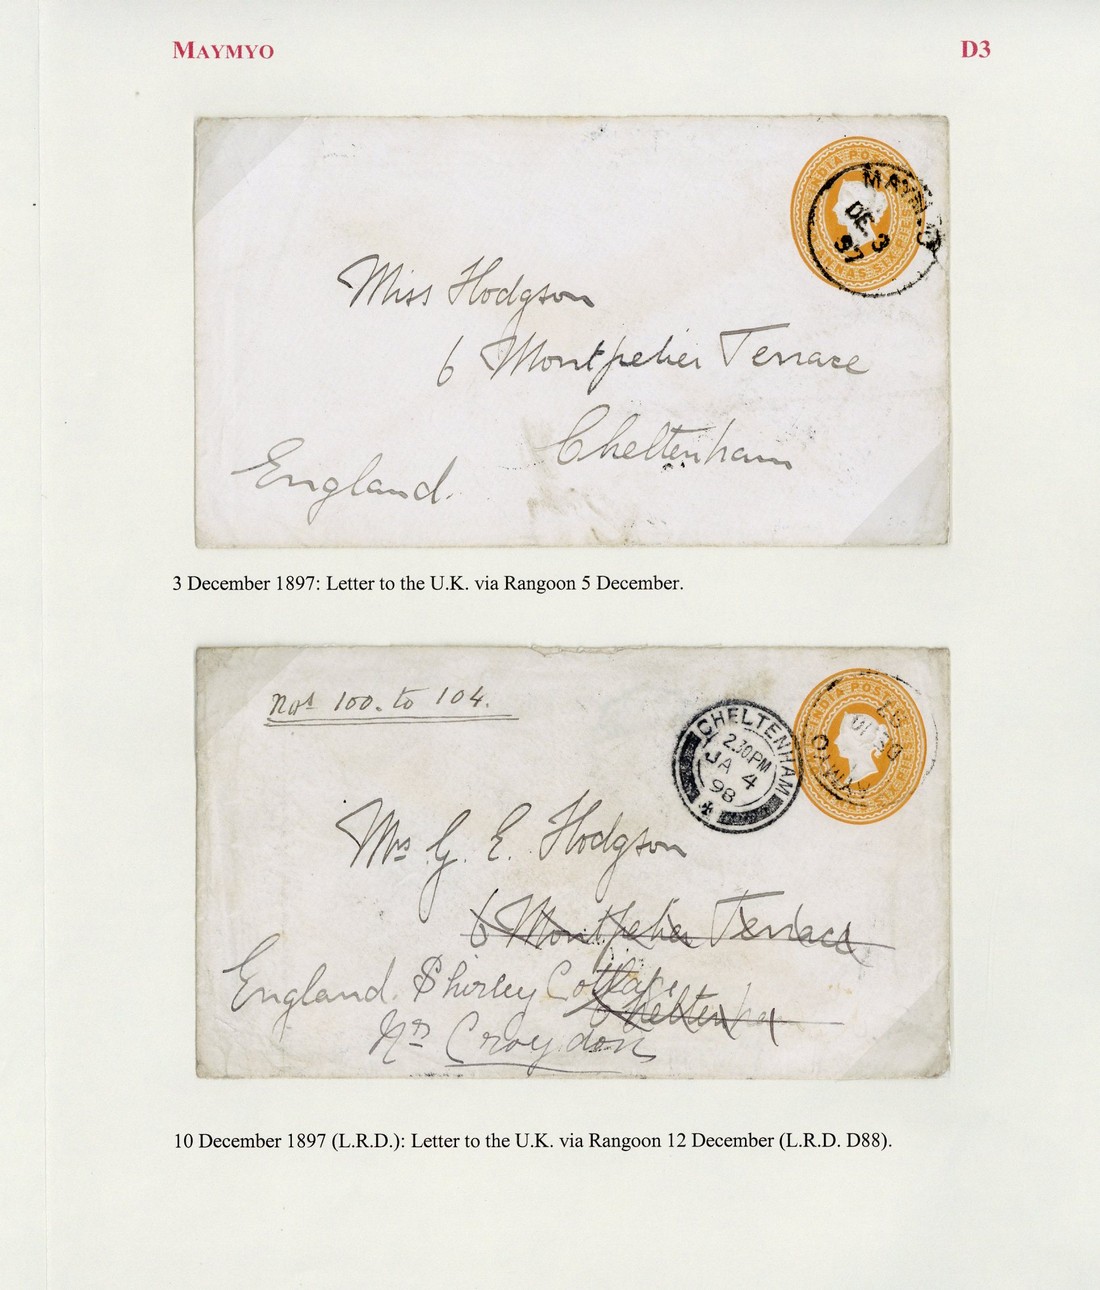 MAYMYO
D3
INDIA POSTAGE
MAYMYO
DE 3
97
Miss Hodgson
6 Montpelier Terrace
Cheltenham
England.
3 December 1897: Letter to the U.K. via Rangoon 5 December.
Nos 100. to 104.
CHELTENHAM
2.30PM
JA 4
98
INDIA POSTAGE
MAYMYO
DE 10
97
Mrs G. E. Hodgson
6 Montpelier Terrace
England. Shirley Cottage
Cheltenham
Nr Croydon
10 December 1897 (L.R.D.): Letter to the U.K. via Rangoon 12 December (L.R.D. D88).